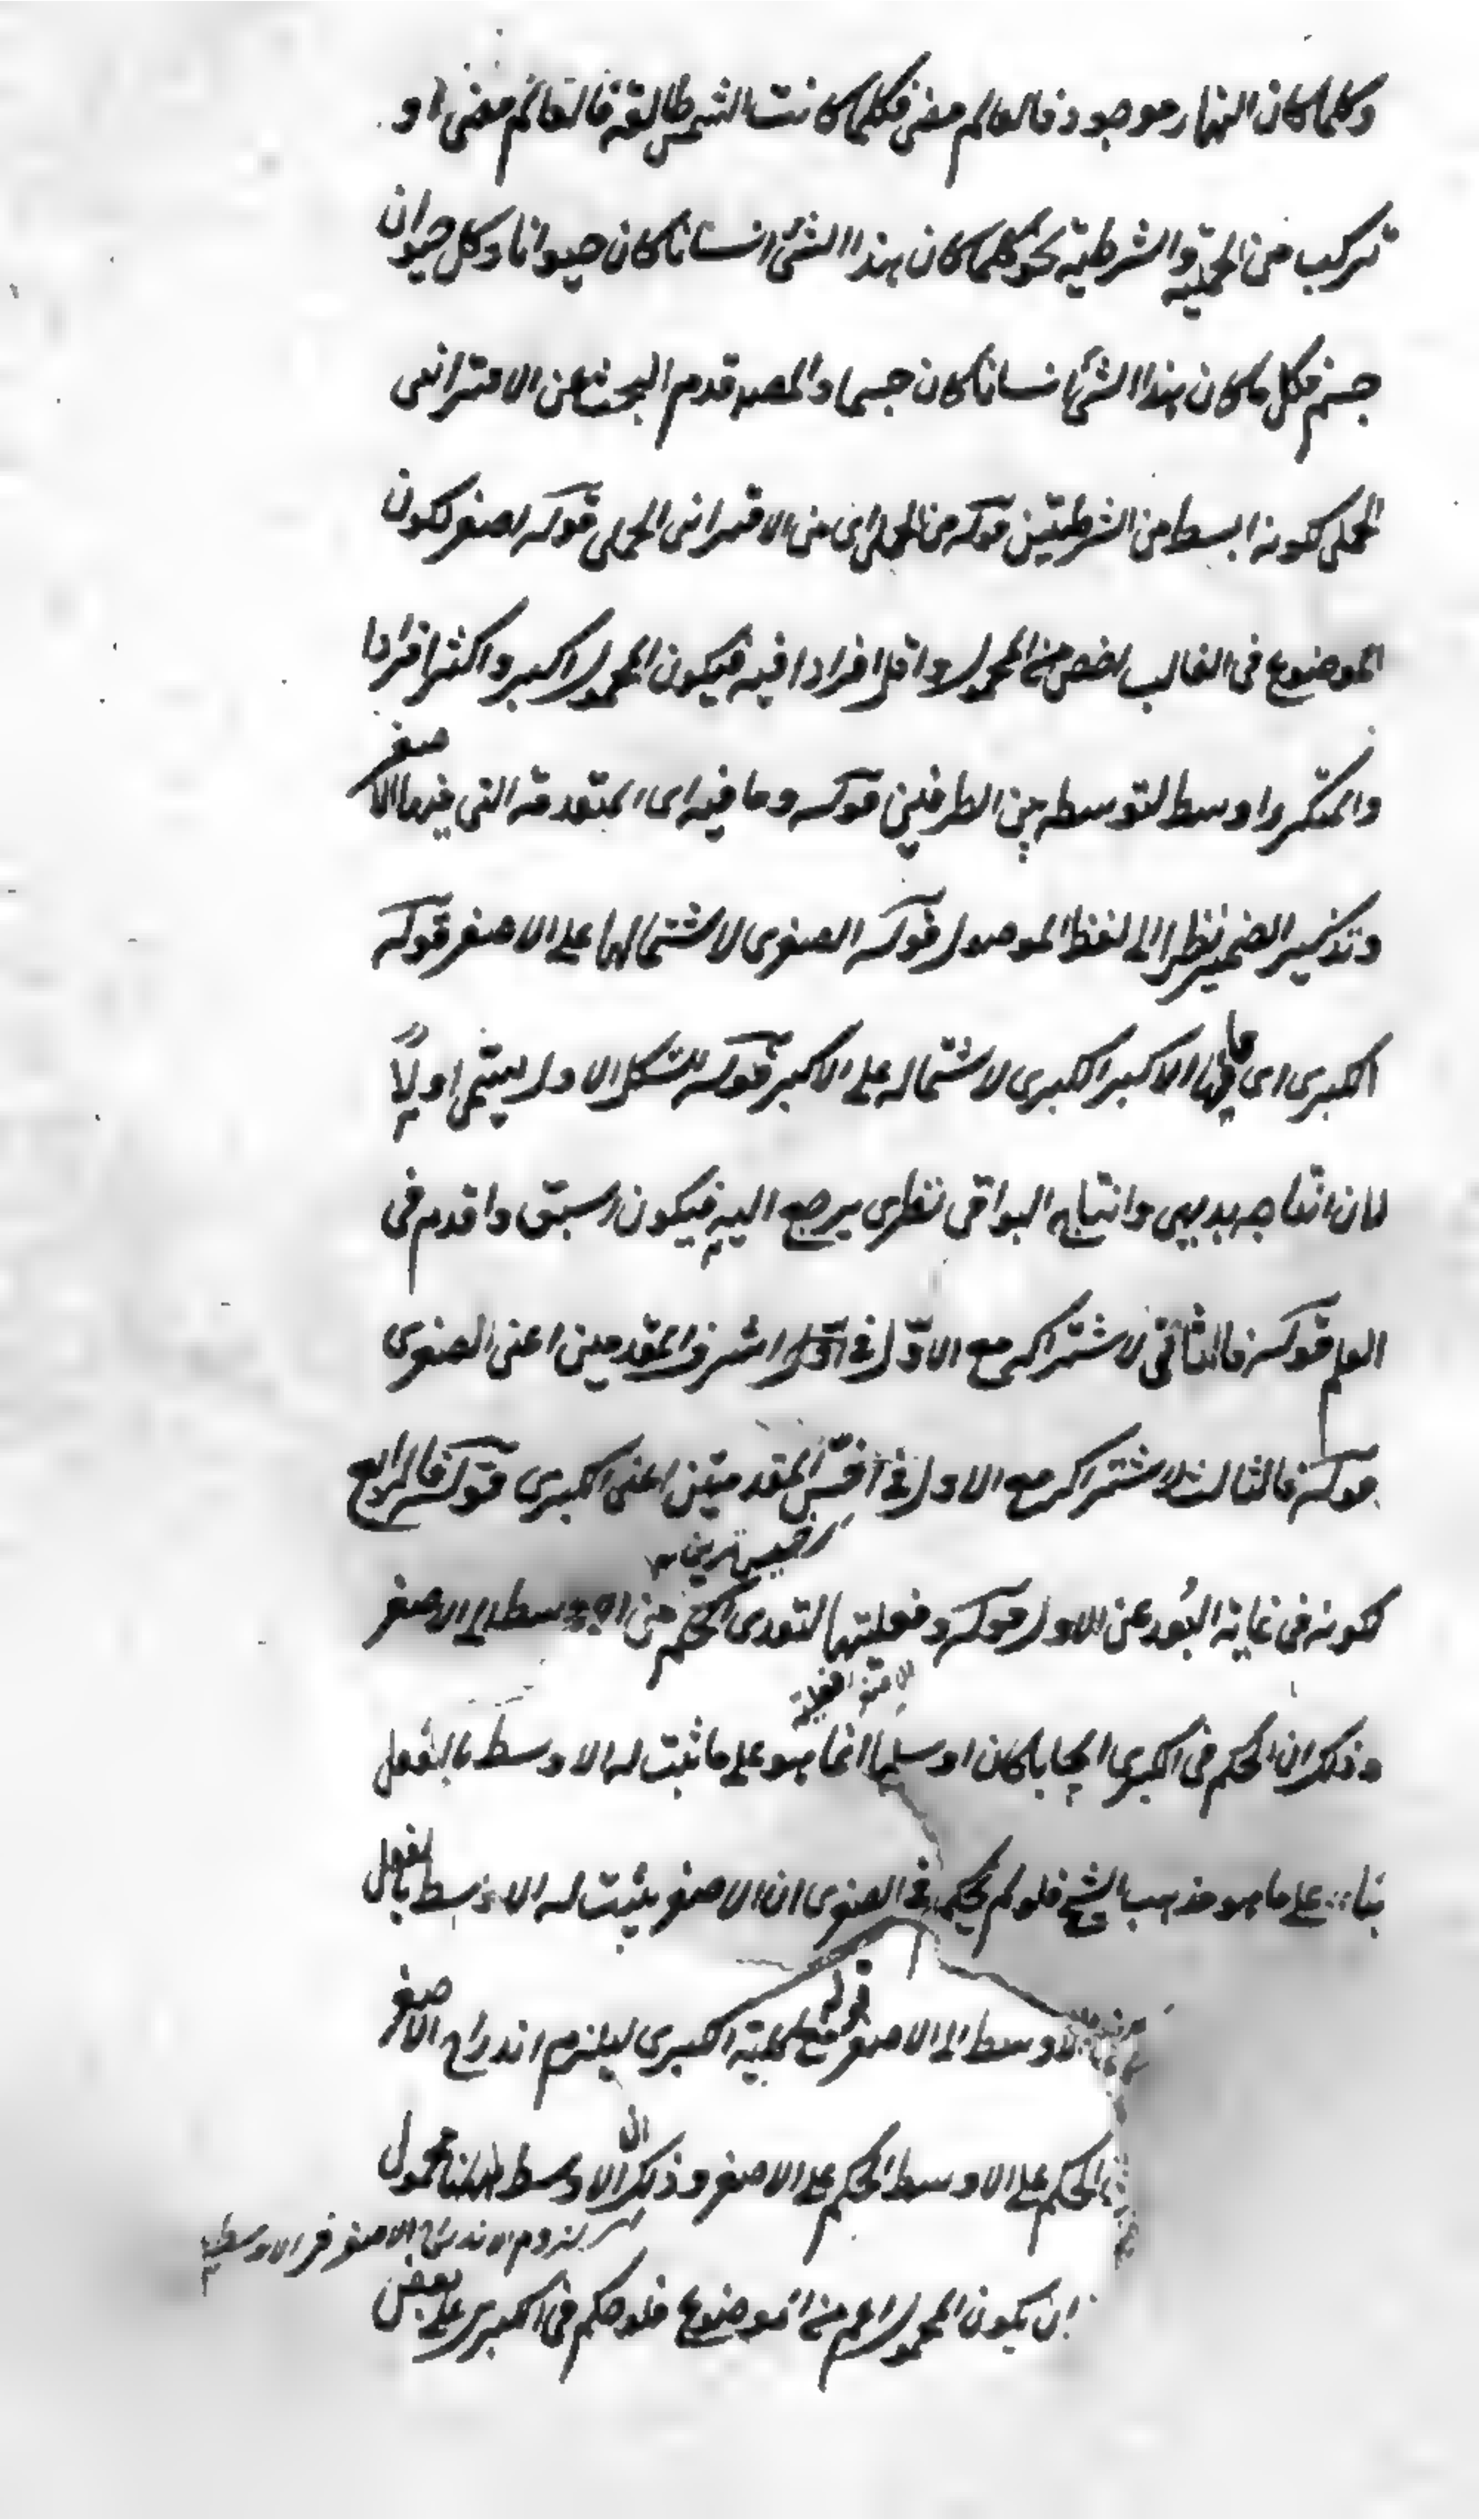 وكلما كان النهار موجود فالعالم مضئ فكلما كانت الشمس طالعة فالعالم مضئ او
تركب من الحملية والشرطية نحو كلما كان هذا الشئ انسانا كان حيوانا وكل حيوان
جسم فكل ما كان هذا الشئ انسانا كان جسما والمصـ قدم البحث عن الاقترانى
الحملى لكونه ابسط من الشرطيتين قوله من الحملى اى من الاقترانى الحملى قوله اصغر لكون
الموضوع فى الغالب اخص من المحمول واقل افرادا فيه فيكون المحمول اكبر واكثر افرادا
والمتكرر اوسط لتوسطه بين الطرفين قوله وما فيه اى المقدمة التى فيها الاصغر
وتذكير الضمير نظرا الى لفظ الموصول قوله الصغرى لاشتمالها على الاصغر قوله
الكبرى اى ما فيها الاكبر الكبرى لاشتماله على الاكبر قوله الشكل الاول يسمى اولاً
لان انتاجه بديهى وانتاج البواقى نظرى يرجع اليه فيكون اسبق واقدم فى
العلم قوله فالثانى لاشتراكه مع الاوّل فى اشرف المقدمتين اعنى الصغرى
قوله فالثالث لاشتراكه مع الاول فى اخسّ المقدمتين اعنى الكبرى قوله فالرابع
لكونه فى غاية البُعد عن الاول قوله وفعليتها لتعدى الحكم من الاوسط الى الاصغر
وذلك ان الحكم فى الكبرى ايجابا كان او سلبا انما هو على ما ثبت له الاوسط بالفعل
بناء على ما هو مذهب الشيخ فلو لم يحكم فى الصغرى ان الاصغر يثبت له الاوسط بالفعل
الاوسط الى الاصغر قوله مع كلية الكبرى ليلزم اندراج الاصغر
الحكم على الاوسط الحكم على الاصغر وذلك ان الاوسط ههنا محمول
لزوم الاندراج الاصغر فى الاوسط
ان يكون المحمول اعم من الموضوع فلو حكم فى الكبرى على بعض